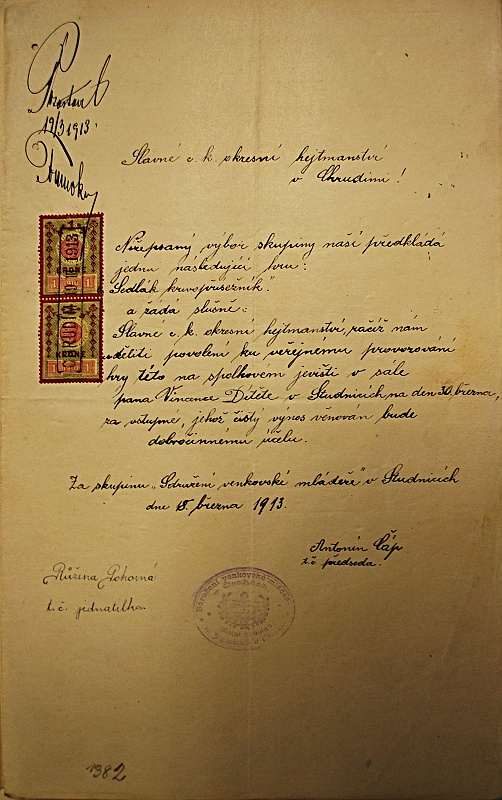 19/3 1913.
Slavné c. k. okresní hejtmanství
v Chrudimi!
Nížepsaný výbor skupiny naší předkládá
jednu následující hru:
„Sedlák křivopřísežník“
a žádá slušně:
Slavné c. k. okresní hejtmanství, račiž nám
uděliti povolení ku veřejnému provozování
hry této na spolkovém jevišti v sále
pana Vincence Dítěte v Studnicích na den 30. března,
za vstupné, jehož čistý výnos věnován bude
dobročinnému účelu.
Za skupinu „Sdružení venkovské mládeže“ v Studnicích
dne 18. března 1913.
Antonín Čáp
t. č. předseda.
Růžena Pohorná
t. č. jednatelka
KRONE
1 1
KRONE
1 1
CHRUDIM 1913
Sdružení venkovské mládeže
v Čechách
1382